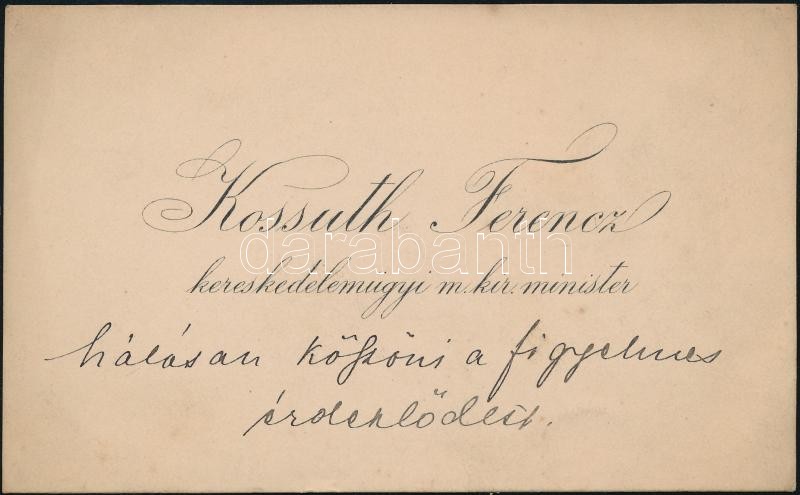 Kossuth Ferencz
darabanth
kereskedelemügyi m. kir. minister
hálásan köszöni a figyelmes
érdeklődést.